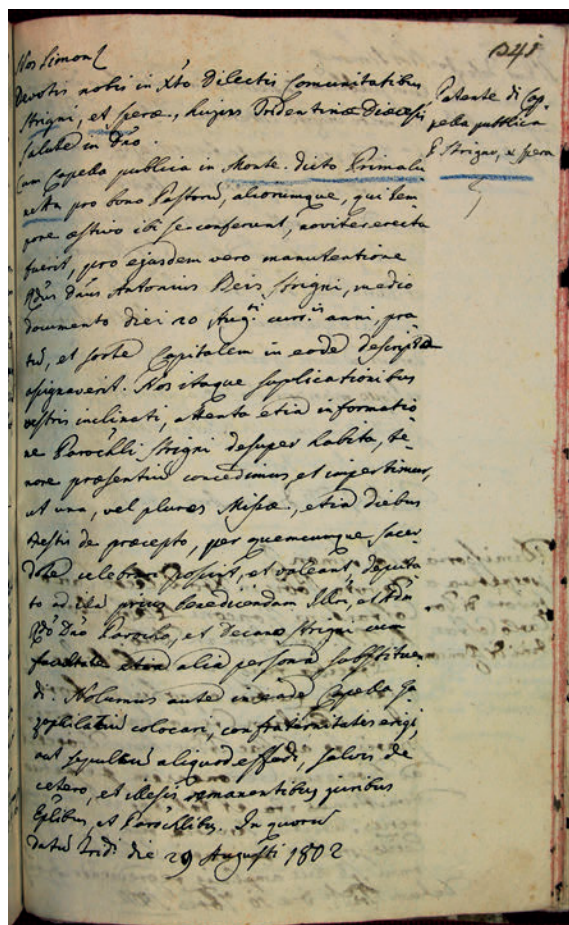 241
Nos Simon
Devotis nobis in Xto Dilectis Comunitatibus
Strigni, et Speræ, hujus Tridentinæ Diœcesis
Salutē in Dño.
Cum Capella publica in Monte dicto Primalu
netta pro bono Pastorū, aliorumque, qui tem
pore æstivo ibi se conferunt, noviter erecta
fuerit, pro ejusdem vero manutentione
Rdus Dnus Antonius Deis Strigni, medio
documento diei 20 Augti currtis anni, pra
tū, et sorte Capitalem in eodē descripta
assignaverit. Nos itaque suplicationibus
vestris inclinati, attenta etiā informatio
ne Parochli Strigni desuper habita, te-
nore præsentiū concedimus, et impertimur,
ut una, vel plures Missæ, etiā diebus
festis de præcepto, per quemcunque Sacer
dotē celebrari possint, et valeant, deputa
to ad illā prius benedicendam Illri, et Adm
Rdo Dno Parocho, et Decano Strigni cum
facultate etiā aliā personā substituen
di. Nolumus autē in eadē Capella ga
zophilatiū colocari, confraternitates erigi,
aut sepulchrū aliquod effodi, salvis de
cetero, et illesis remanentibus juribus
Eplibus, et Parochlibus. In quorū
Datū Tridi die 29 Augusti 1802
Patente di Cap-
pella pubblica
P Strigno, e Spera